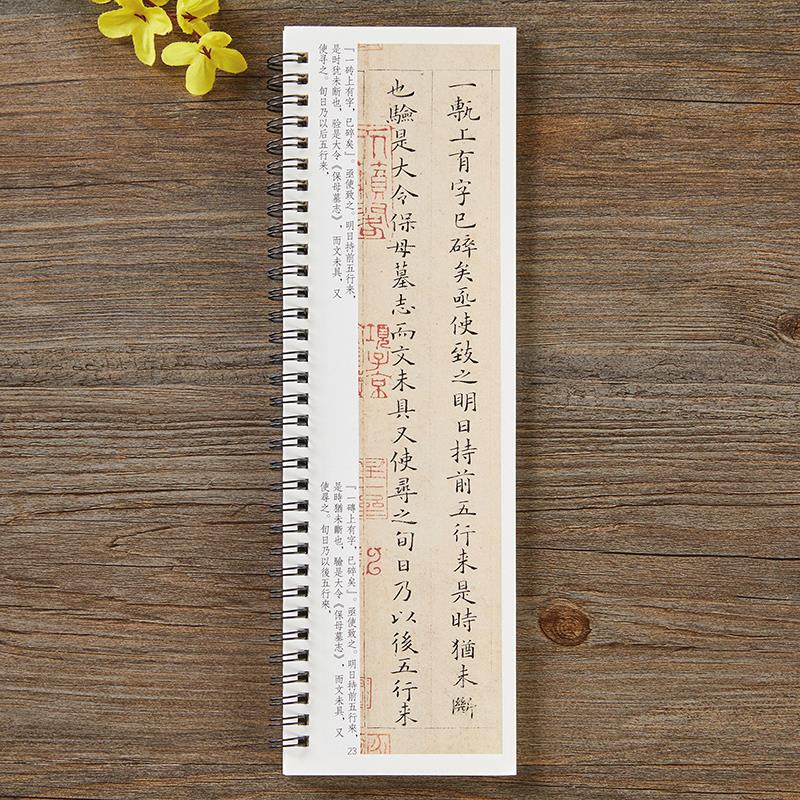 一甎上有字已碎矣亟使致之明日持前五行来是時猶未斷
也驗是大令保母墓志而文未具又使尋之旬日乃以後五行来
項子京
『一砖上有字，已碎矣』。亟使致之。明日持前五行来，
是时犹未断也，验是大令《保母墓志》，而文未具，又
使寻之。旬日乃以后五行来，
『一磚上有字，已碎矣』。亟使致之。明日持前五行來，
是時猶未斷也，驗是大令《保母墓志》，而文未具，又
使尋之。旬日乃以後五行來，
23